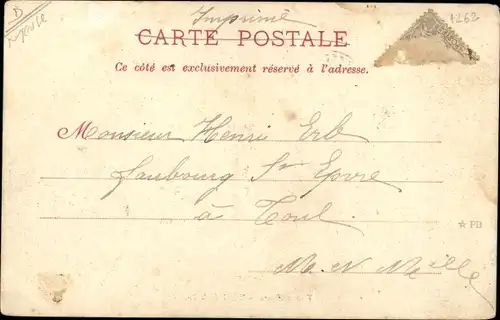 D
Imprimé
1262
CARTE POSTALE
Ce côté est exclusivement réservé à l'adresse.
Monsieur Henri Erb
faubourg St Epvre
à Toul
☆ FB
M. et M.elle